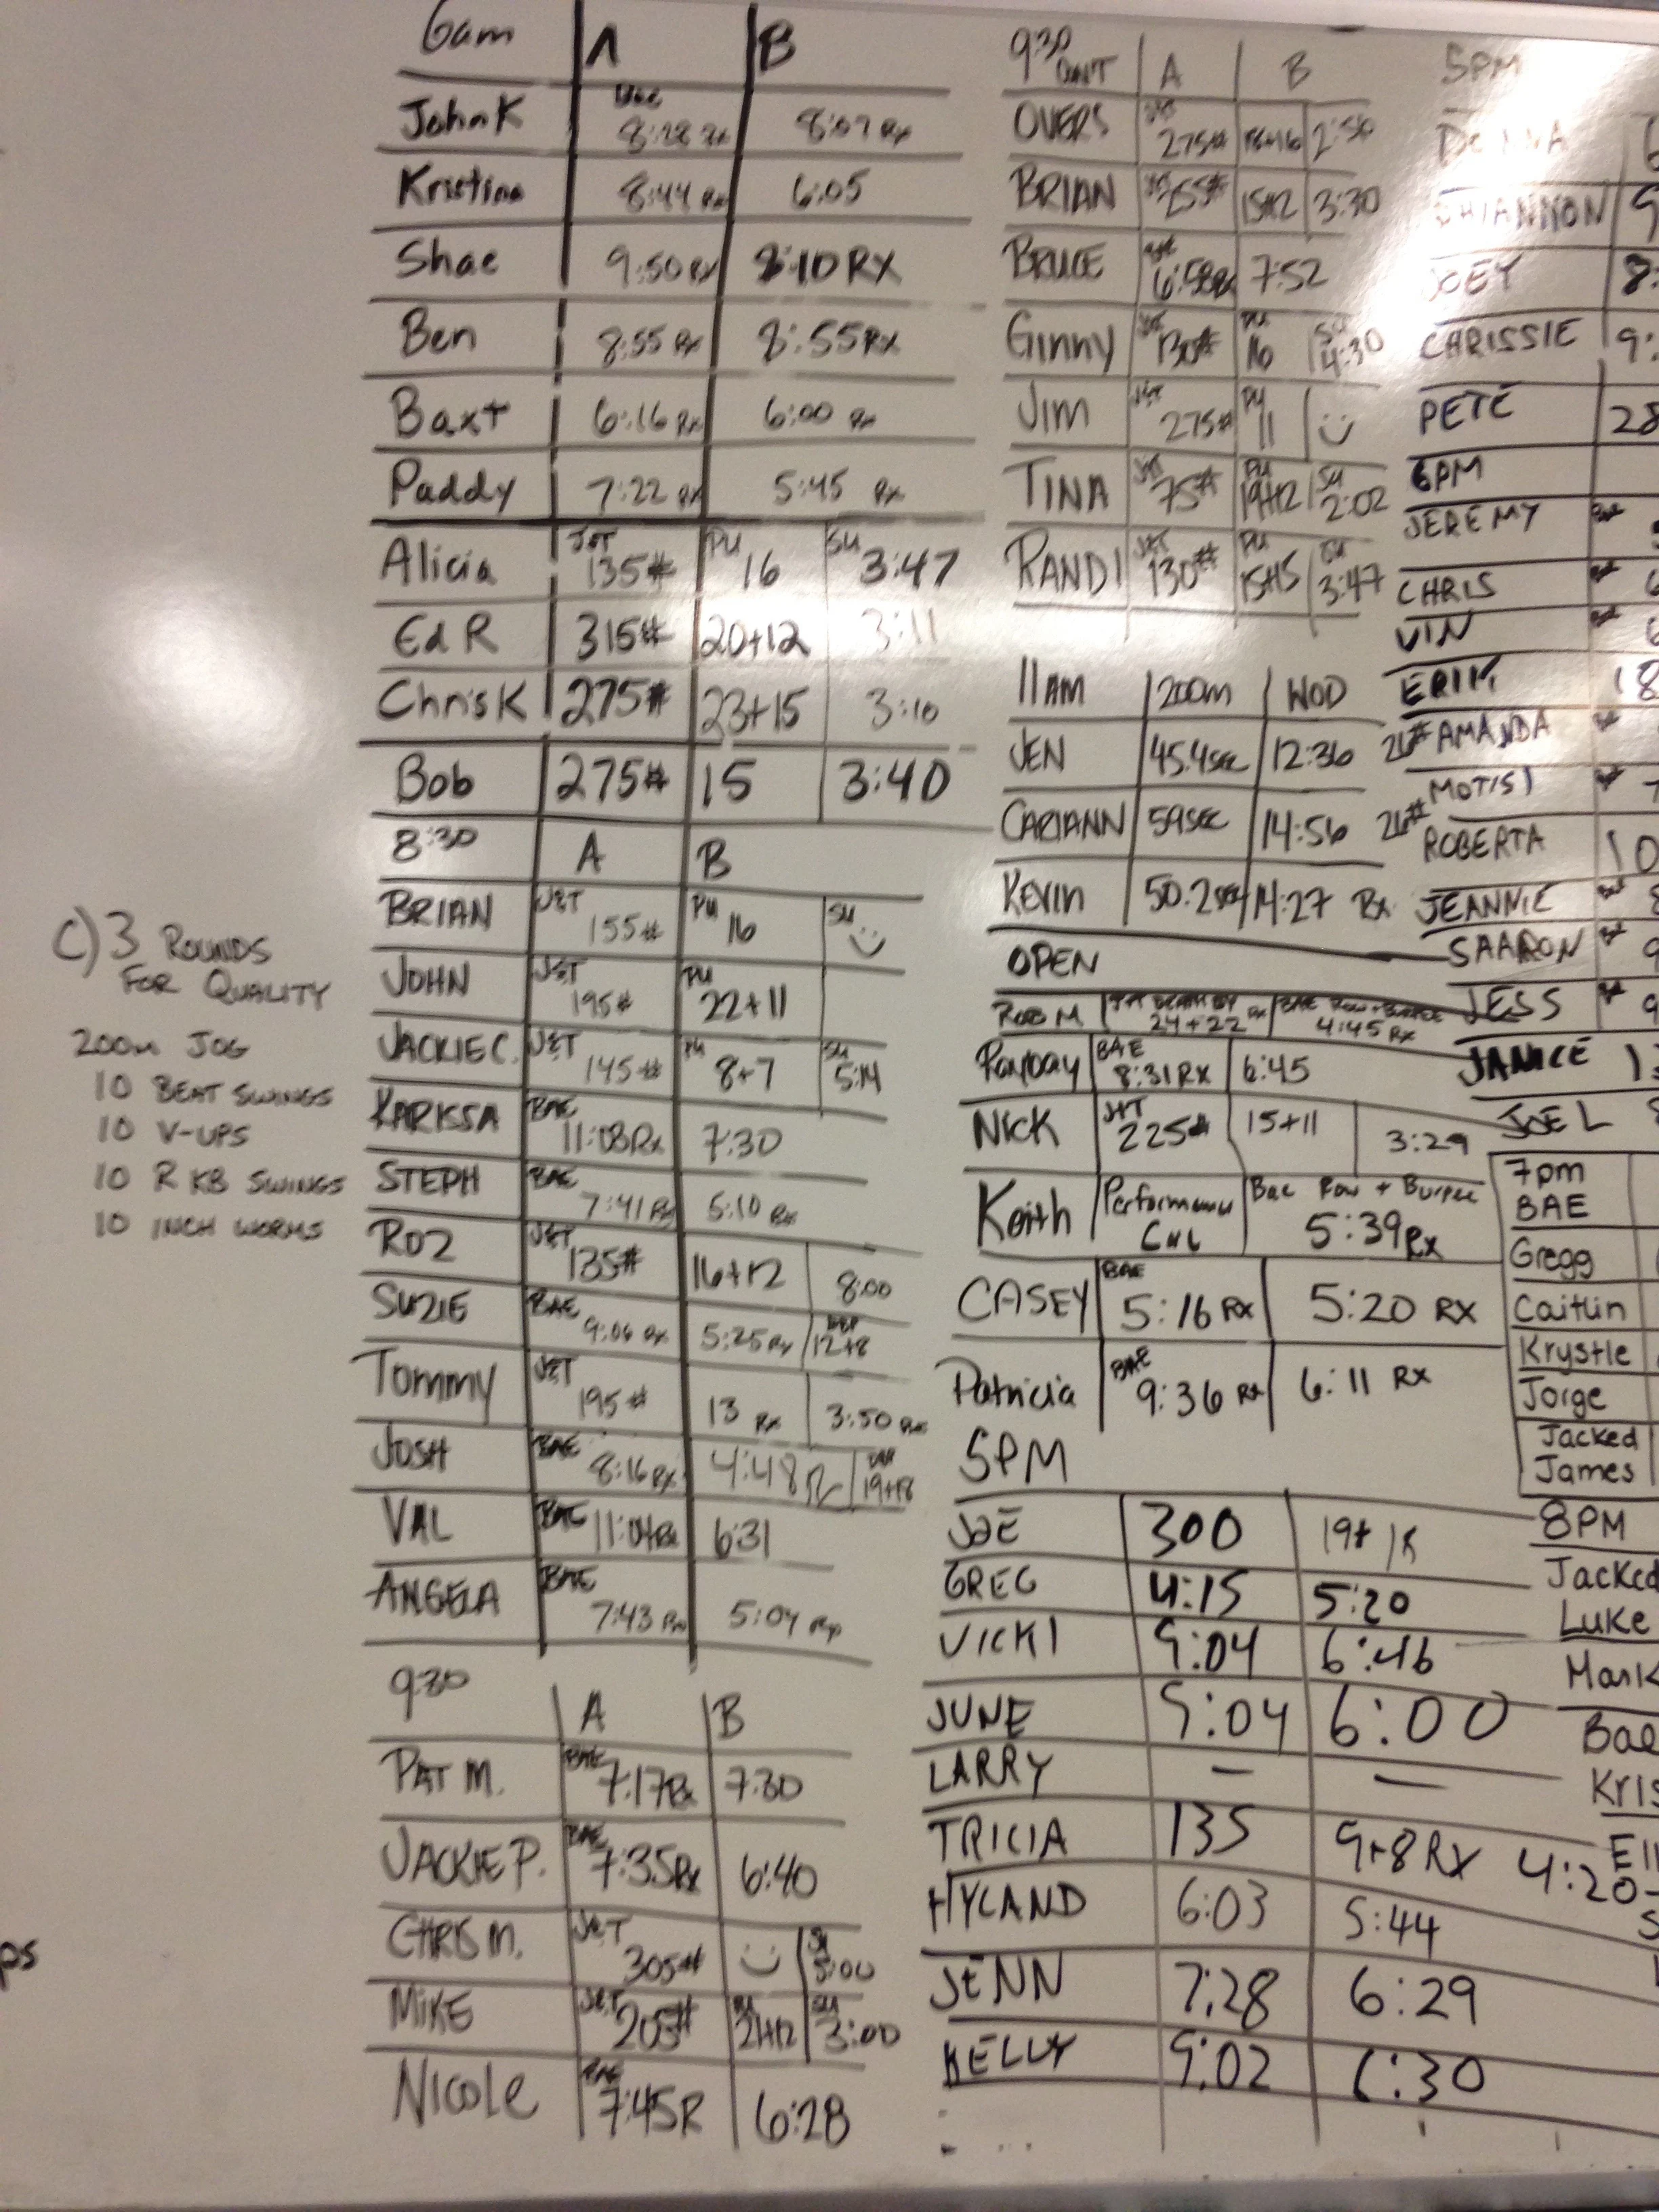 6am A B
John K Bae 8:28 Rx 8:07 Rx
Kristina 8:44 Rx 6:05
Shae 9:50 Rx 8:10 RX
Ben 8:55 Rx 8:55 RX
Baxt 6:16 Rx 6:00 Rx
Paddy 7:22 Rx 5:45 Rx
Alicia J&T 135# PU 16 SU 3:47
Ed R 315# 20+12 3:11
Chris K 275# 23+15 3:10
Bob 275# 15 3:40
8:30 A B
BRIAN J&T 155# PU 16 SU
JOHN J&T 195# PU 22+11
JACKIE C. J&T 145# PU 8+7 SU 5:14
KARISSA BAE 11:08 Rx 7:30
STEPH BAE 7:41 Rx 5:10 Rx
ROZ J&T 135# 16+12 8:00
SUZIE BAE 9:06 Rx 5:25 Rx 12+8
Tommy J&T 195# 13 Rx 3:50 Rx
JOSH BAE 8:16 Rx 4:48 19+18
VAL BAE 11:04 Rx 6:31
ANGELA BAE 7:43 Rx 5:04 Rx
9:30 A B
PAT M. BAE 7:17 Rx 7:30
JACKIE P. BAE 7:35 Rx 6:40
CHRIS M. J&T 305# SU 5:00
MIKE J&T 205# PU 21+12 SU 3:00
Nicole BAE 7:45 R 6:28
C) 3 ROUNDS
FOR QUALITY
200m JOG
10 BEAT SWINGS
10 V-UPS
10 R KB SWINGS
10 INCH WORMS
ps
9:30 CON'T A B
OVERS J&T 275# 18+16 2:50
BRIAN J&T 255# 15+12 3:30
BRUCE BAE 6:58 Rx 7:52
Ginny J&T 130# PU 16 SU 4:30
JIM J&T 275# PU 11
TINA J&T 75# PU 19+12 SU 2:02
RANDI J&T 130# PU 15+15 SU 3:47
11AM 200m WOD
JEN 45.4 SEC 12:36 26#
CARIANN 59 SEC 14:56 26#
KEVIN 50.2 SEC 14:27 Rx
OPEN
ROB M 24+22 Rx BAE ROW + BURPEE 4:45 Rx
Payday BAE 8:31 RX 6:45
NICK J&T 225# 15+11 3:29
Keith Performance Bae Row + Burpee 5:39 Rx
CASEY BAE 5:16 RX 5:20 RX
Patricia BAE 9:36 Rx 6:11 RX
5PM
JOE 300 19+
GREG 4:15 5:20
VICKI 9:04 6:46
JUNE 9:04 6:00
LARRY — —
TRICIA 135 9+8 RX 4:20
HYLAND 6:03 5:44
JENN 7:28 6:29
KELLY 9:02 6:30
5PM
DONNA 6
SHIANNON 9
JOEY 8:
CHARISSIE 9:
PETE 28
6PM
JEREMY
CHRIS 6
VIN 6
ERIK 18
AMANDA
MOTISI 7
ROBERTA 10
JEANNIE 8
SAARON 9
JESS 9
JANICE 13
JOE L 8
7pm
BAE
Gregg
Caitlin
Krystle
Jorge
Jacked
James
8PM
Jacked
Luke
Mark
Bae
Kris
Ell